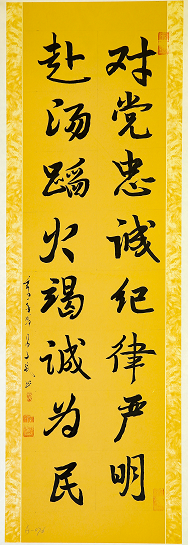 对党忠诚纪律严明
赴汤蹈火竭诚为民